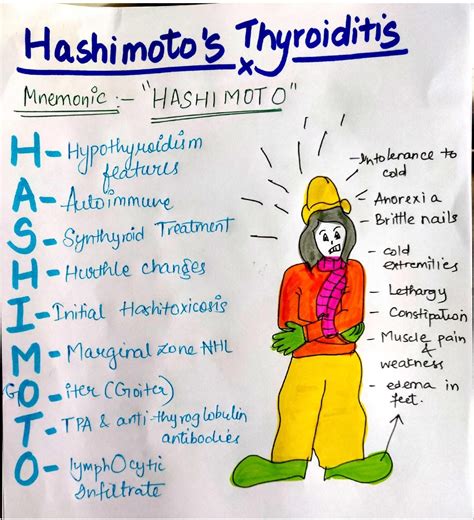 Hashimoto's Thyroiditis
Mnemonic :- "HASHIMOTO"
H - Hypothyroidism
features
A - Autoimmune
S - Synthyroid Treatment
H - Hurthle changes
I - Initial Hashitoxicosis
M - Marginal zone NHL
GO - iter (Goiter)
T - TPA & anti-thyroglobulin
antibodies
O - lymphOcytic
Infiltrate
- Intolerance to
cold
- Anorexia
- Brittle nails
- cold
extremilies
- Lethargy
- Constipation
- Muscle pain
&
weakness
- edema in
feet.